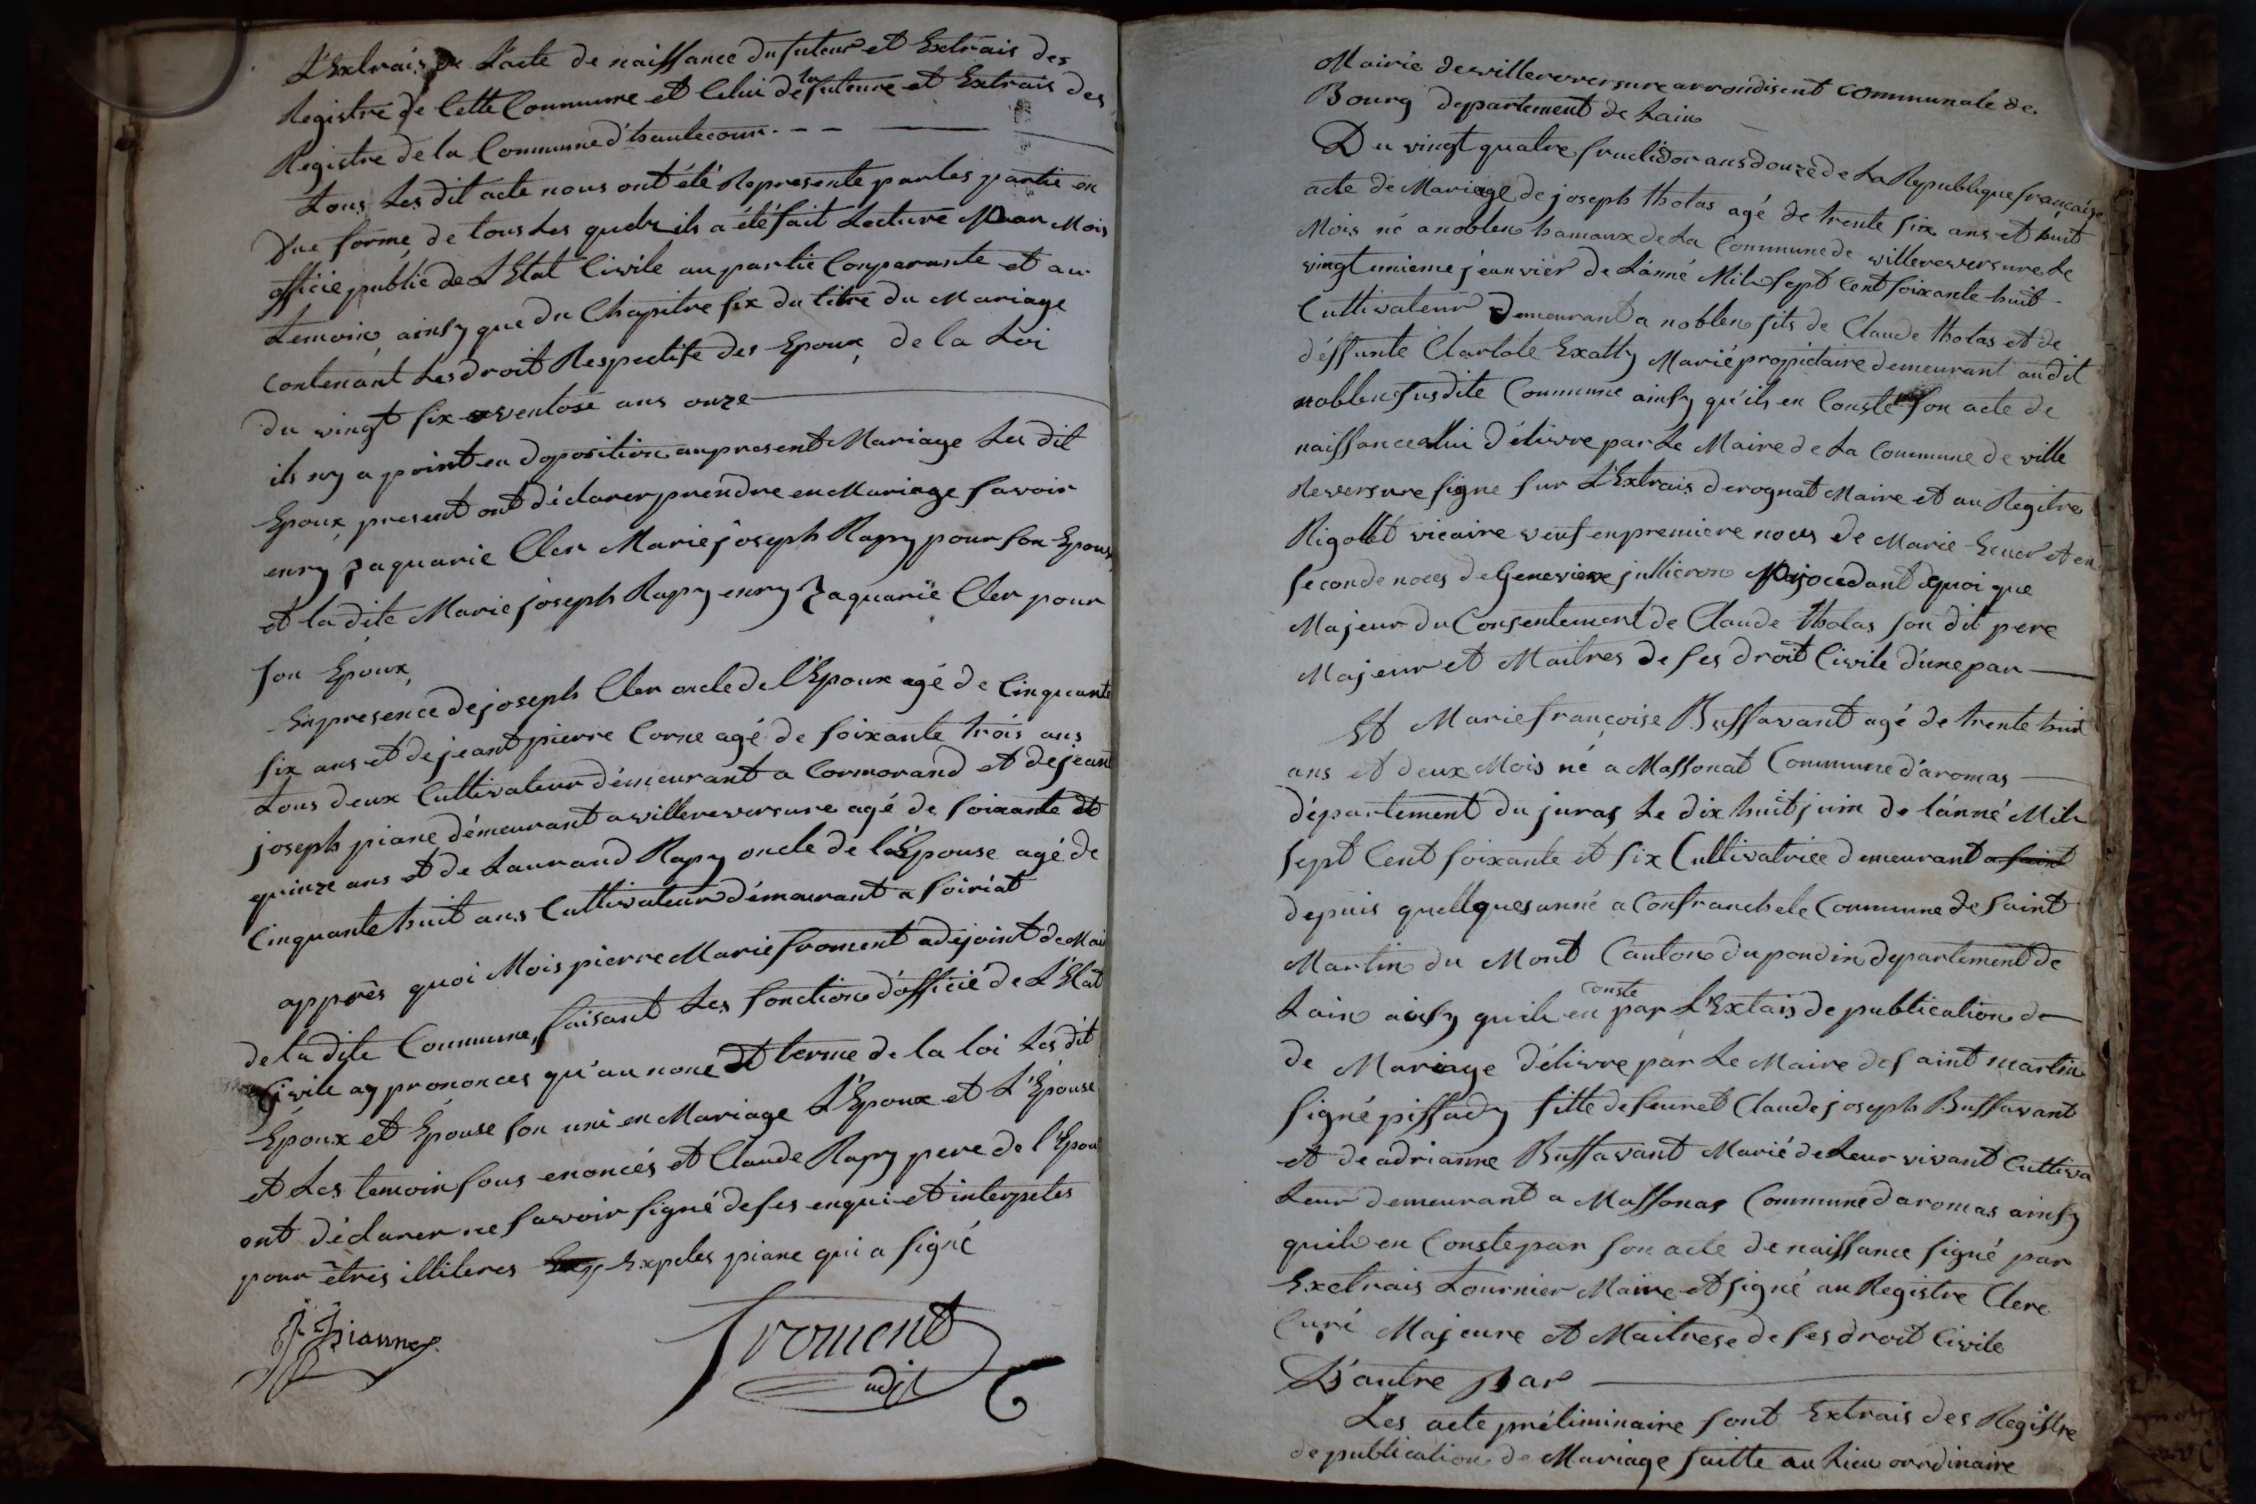 L'Extrais de L'acte de naissance du futeur et Extrais des
Registre de Cette Commune et Celui de la futeure et Extrais des
Registre de la Commune d'hautecour. - -
Tous Les dit acte nous ont été Represente par les partie en
due forme de tous Les quels ils a été fait Lecture par Mois
officie public de L'Etat Civile au partie Conparante et au
temoin ainsy que du Chapitre six du titre du Mariage
Contenant Les droit Respectife des Epoux de la Loi
du vingt six ventose ans onze
ils ny a point eu doposition au present Mariage Les dit
Epoux present ont déclarer prendre en Mariage savoir
enry Zaquarie Cler Marie joseph Rapy pour son Epouse
et la dite Marie joseph Rapy enry Zaquarie Cler pour
son Epoux
En presence de joseph Cler oncle de l'Epoux agé de Cinquante
six ans et de jeant pierre Corne agé de soixante trois ans
tous deux Cultivateur démeurant a Cormorand et de jeant
joseph piane démeurant a villereversure agé de soixante et
quinze ans et de Laurand Rapy oncle de l'Epouse agé de
Cinquante huit ans Cultivateur démeurant a soiriat
apprès quoi Mois pierre Marie froment adejoint de Mai
de la dite Commune, faisant Les fonction d'officié de L'Etat
Civile ay prononces qu'au nom et terme de la loi Les dit
Epoux et Epouse son uni en Mariage L'Epoux et L'Epouse
et Les temoin sous enoncés et Claude Rapy pere de l'Epou
ont déclarer ne savoir signé de ses enqui et interpetes
pour êtres illiteres Expetes piane qui a signé
J J Pianne
froment
adjt
Mairie de villereversure arrondisent communale de
Bourg departement de Lain
Du vingt quatre fructidor ans douze de La Republique française
acte de Mariage de joseph tholas agé de trente six ans et huit
Mois né a noblens hamaux de La Commune de villereversure Le
vingt unieme jeanvier de L'anné Mil sept Cent soixante huit
Cultivateur Demeurant a noblens fils de Claude tholas et de
déffunte Clarlote Exatty Marié propietaire demeurant audit
noblens susdite Commune ainsy qu'ils en Conste son acte de
naissance a lui délivre par Le Maire de La Commune de ville
Reversure signe sur L'Extrais derognat Maire et au Registre
Rigollet vicaire veuf en premiere noces de Marie et en
seconde noces de Genevieve jullieron procedant quoi que
Majeur du Consentement de Claude tholas son dit pere
Majeur et Maitres de ses droit Civile d'une par
Et Marie françoise Buffavant agé de trente huit
ans et deux Mois né a Massonat Commune d'aromas
département du juras Le dix huit juin de l'anné Mil
sept Cent soixante et six Cultivatrice demeurant a saint
depuis quellques anné a Confranchele Commune de saint
Martin du Mont Canton du pondin departement de
Lain ainsy quil en conste par L'Extais de publication de
de Mariage délivre par Le Maire de saint martin
signé pissady fille de feuret Claude joseph Buffavant
et de adrianne Buffavant Marié de Leur vivant Cultiva
teur demeurant a Massonas Commune daromas ainsy
quil en Conste par son acte de naissance signé par
Exetrais Tournier Maire et signé au Registre Clere
Curé Majeure et Maitrese de ses droit Civile
D'autre par
Les acte préliminaire sont Extrais des Registre
de publication de Mariage faitte au Lieu orrdinaire